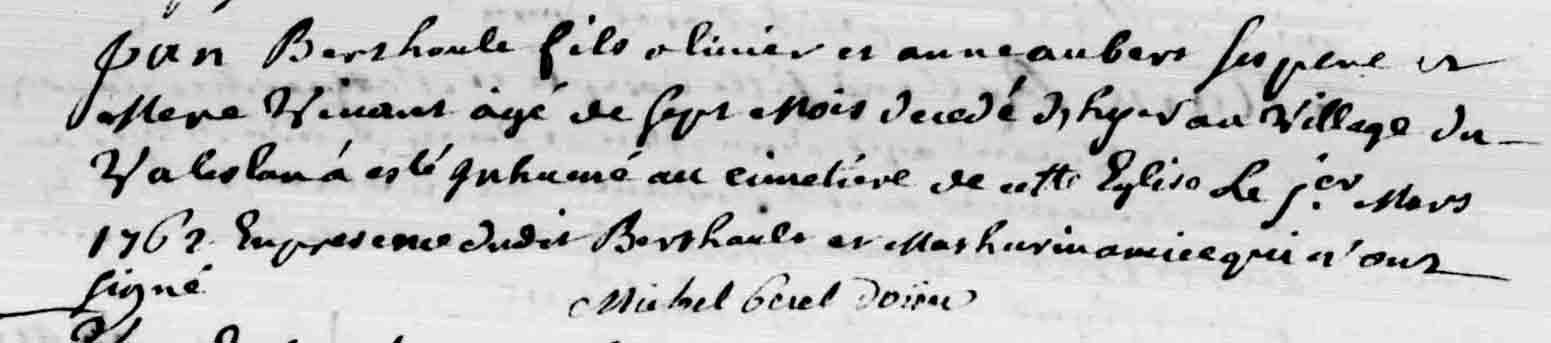 Jan Berthoule fils olivier et anne aubert ses pere et
Mere Vivant agé de sept Mois decedé d'hyer au Village du
a esté Inhumé au cimetiére de cette Eglise Le 1er Mars
1762 En presence dudit Berthault et Mathurin amice qui n'ont
signé
Michel doïen